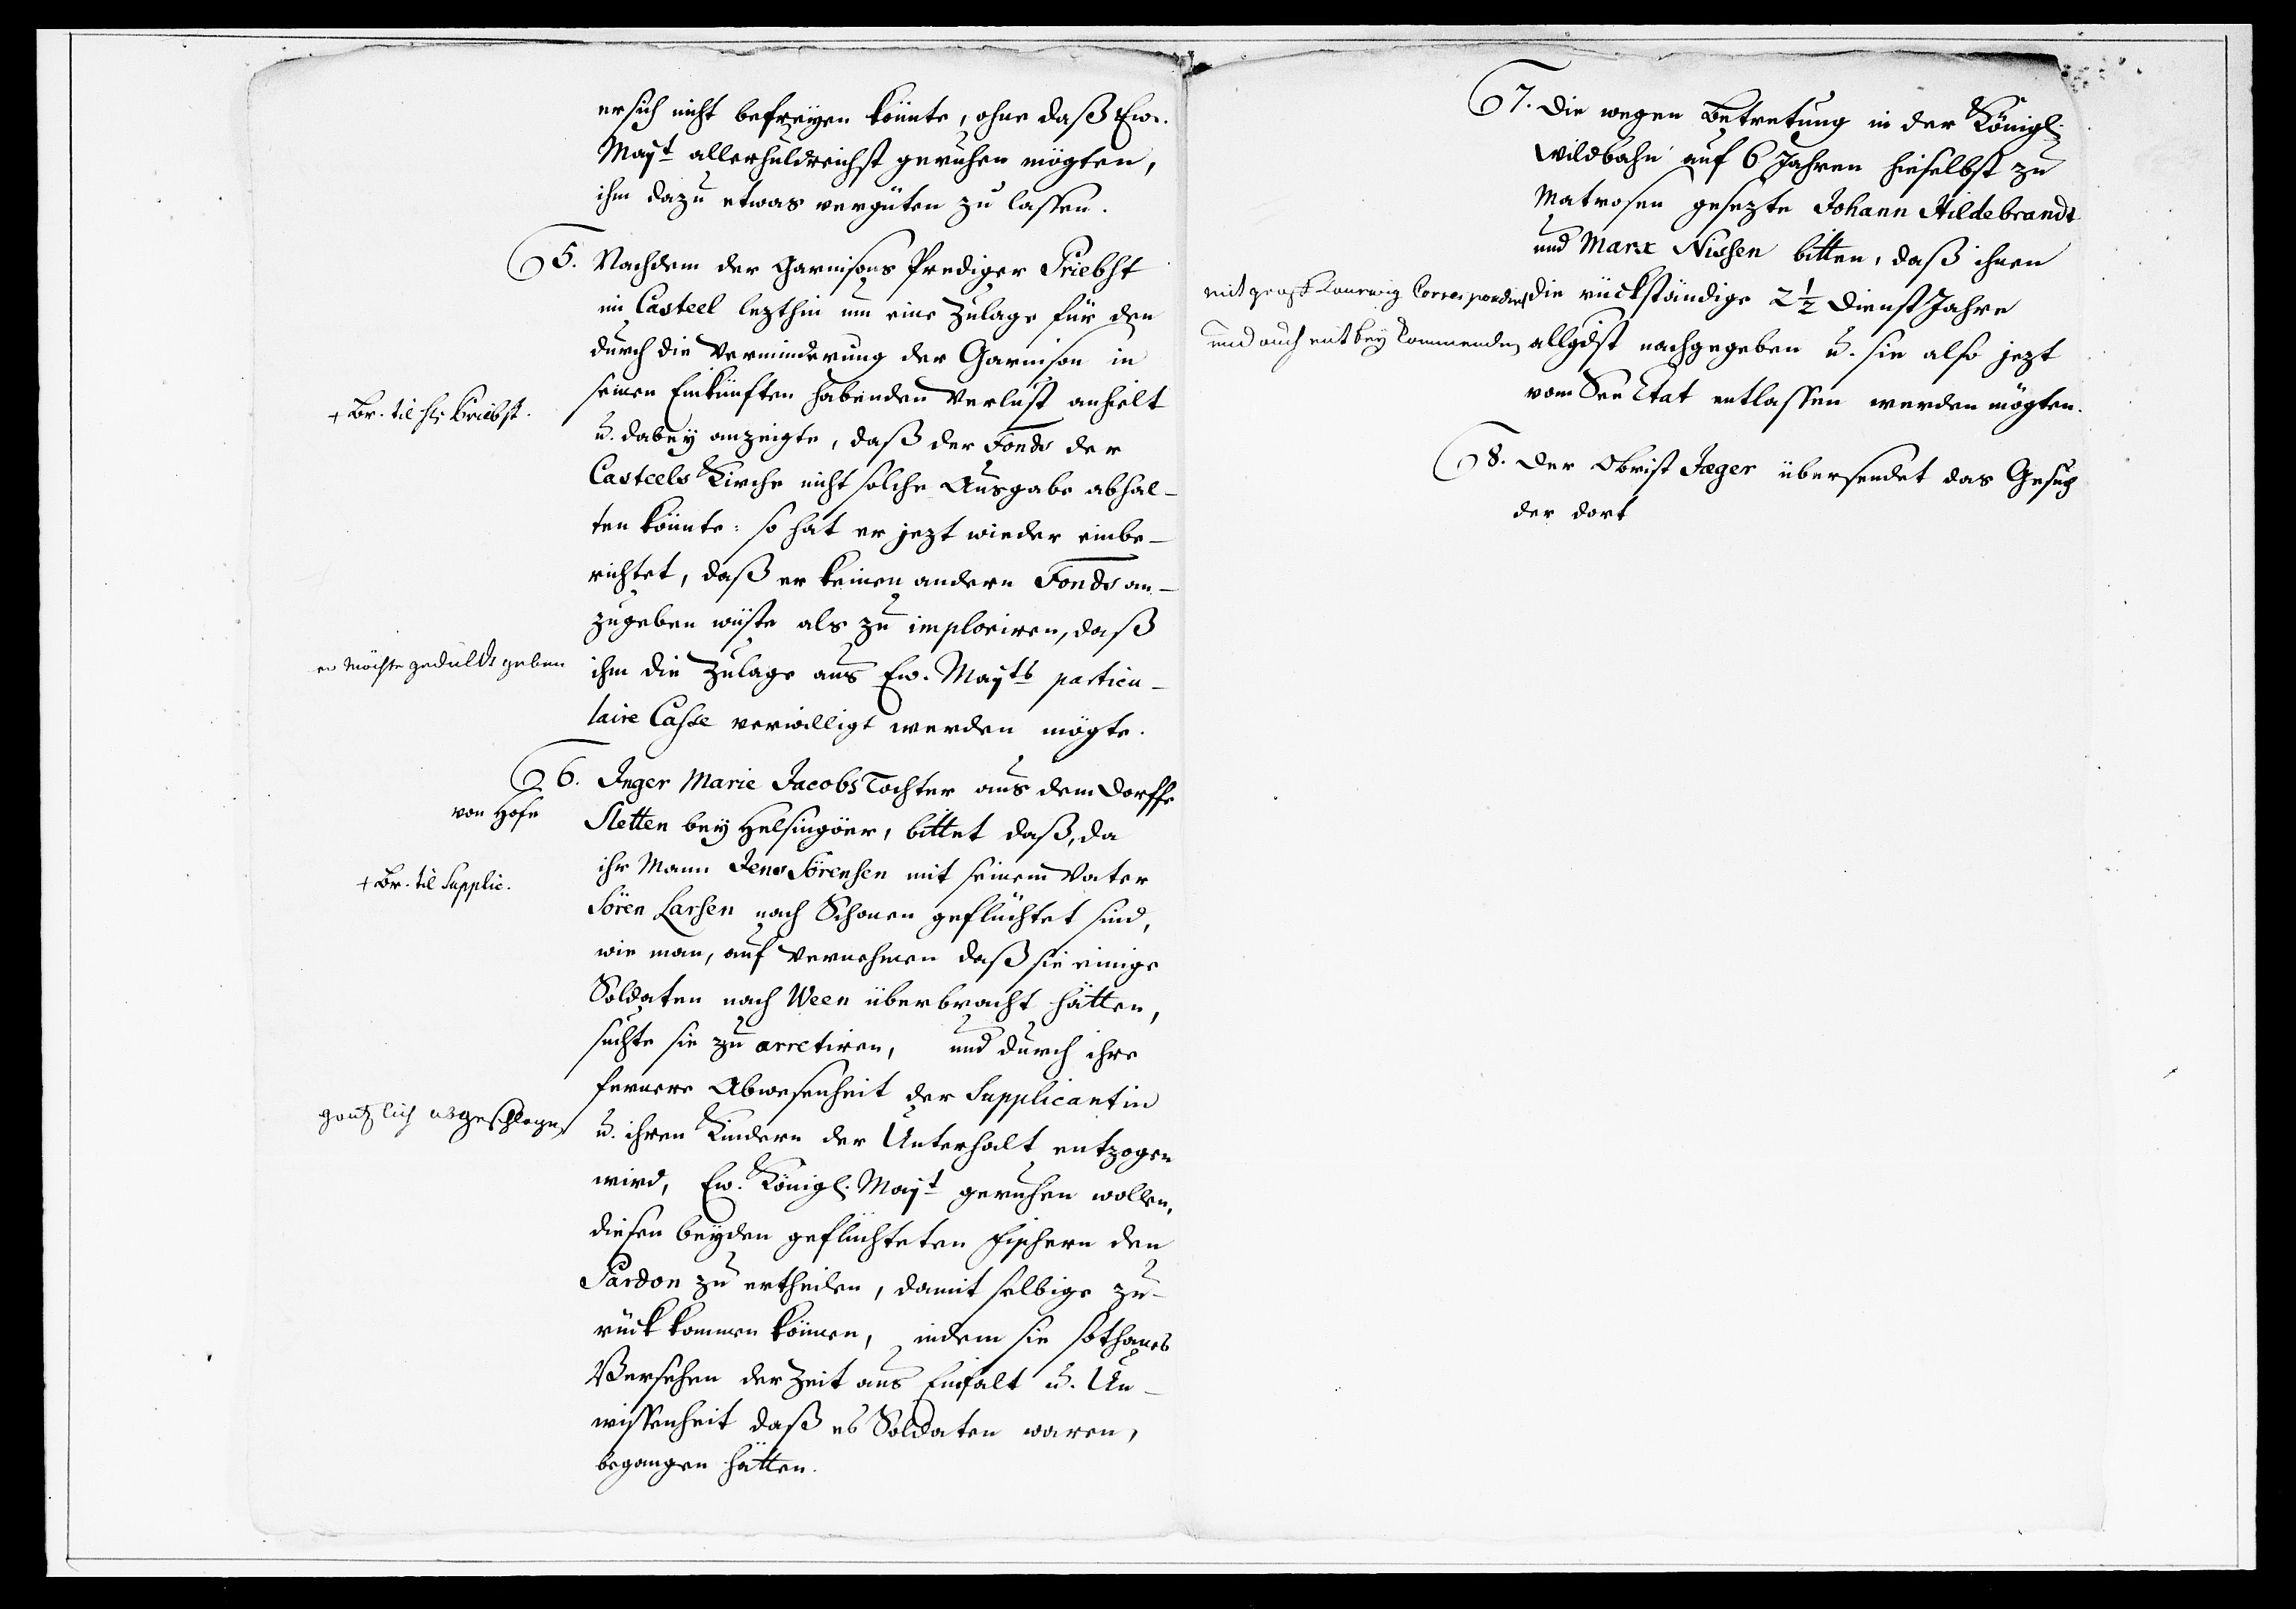 er sich nicht befreyen könnte, ohne daß Ew.
Mayt allerhuldreichst geruhen mögten,
ihm dazu etwas vergüten zu lassen.
5. Nachdem der Garnisons Prediger Priebst
im Casteel lezthin um eine Zulage für den
durch die Verminderung der Garnison in
seinen Einkünften habenden Verlust anhielt
+ Br. til Hr. Priebst.
u. dabey anzeigte, daß der Fonds der
Casteels Kirche nicht solche Ausgabe abhal-
ten könnte: so hat er jezt wieder einbe-
richtet, daß er keinen andern Fonds an-
zugeben wüste als zu imploriren, daß
ihm die Zulage aus Ew. Mayts particu-
er möchte gedulds geben
laire Casse verwilligt werden mögte.
6. Inger Marie Jacobs Tochter aus dem Dorffe
von Hofe
Sletten bey Helsingöer, bittet daß, da
ihr Mann Jens Sörensen mit seinem Vater
+ Br. til Supplic.
Sören Larsen nach Schonen geflüchtet sind,
wie man, auf Vernehmen daß sie einige
Soldaten nach Ween überbracht hätten,
suchte sie zu arretiren, und durch ihre
fernere Abwesenheit der Supplicantin
gantzlich abgeschlagen
u. ihren Kindern der Unterhalt entzogen
wird, Ew. Königl. Mayt geruhen wollen,
diesen beyden geflüchteten Fischern den
Pardon zu ertheilen, damit selbige zu-
rück kommen können, indem sie sothanes
Versehen der Zeit aus Einfalt u. Un-
wissenheit daß es Soldaten waren,
begangen hätten.
7. Die wegen Betretung in der Königl.
Wildbahn auf 6 Jahren hieselbst zu
Matrosen gesezte Johann Hildebrandt
und Marx Nissen bitten, daß ihnen
mit Correspondirt
die rückständige 2 1/2 Dienst Jahre
und auch mit bey kommenden
allgdst nachgegeben u. sie also jezt
vom See Etat entlassen werden mögten.
8. Der Obrist Jæger übersendet das Gesuch
der dort